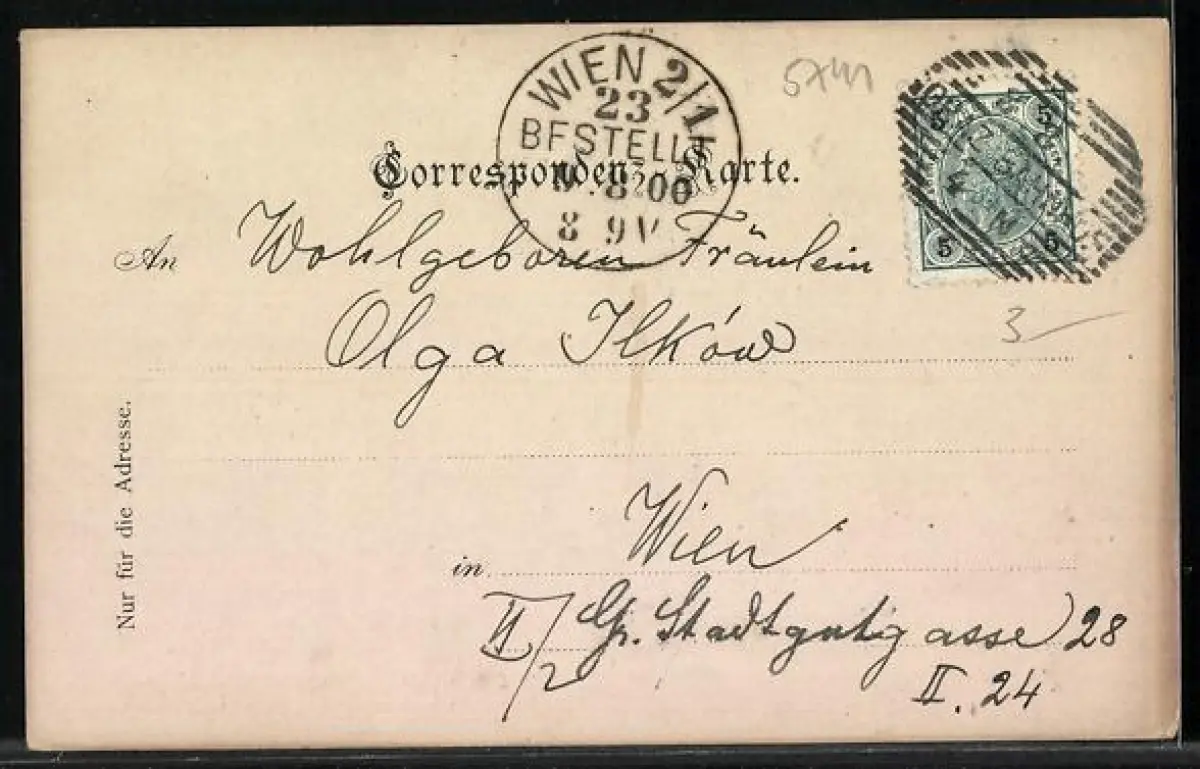 WIEN 2/1
23
BESTELLT
8. 00
8 9V
5
5
5
5
Correspondenz-Karte.
An Wohlgeboren Fräulein
3
Olga Ilków
Nur für die Adresse.
in Wien
II/2 Gr. Stadtgutgasse 28
II. 24